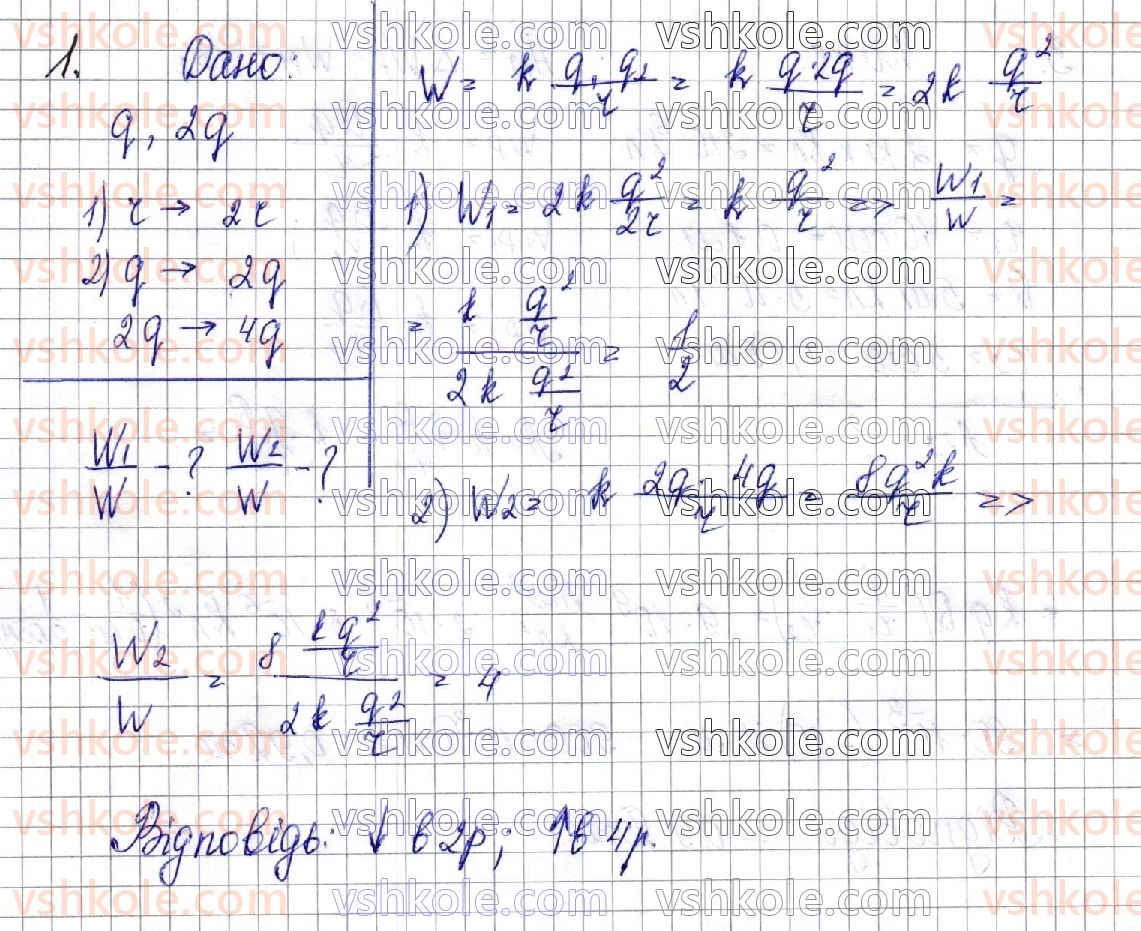 1. Дано:
q, 2q
1) r → 2r
2) q → 2q
2q → 4q
W₁/W - ? W₂/W - ?
W = k q₁·q₂/r = k q·2q/r = 2k q²/r
1) W₁ = 2k q²/2r = k q²/r => W₁/W =
= (k q²/r)/(2k q²/r) = 1/2
2) W₂ = k 2q·4q/r = 8q²k/r =>
W₂/W = (8 kq²/r)/(2k q²/r) = 4
Відповідь: ↓ в 2р; ↑ в 4р.
vshkole.com